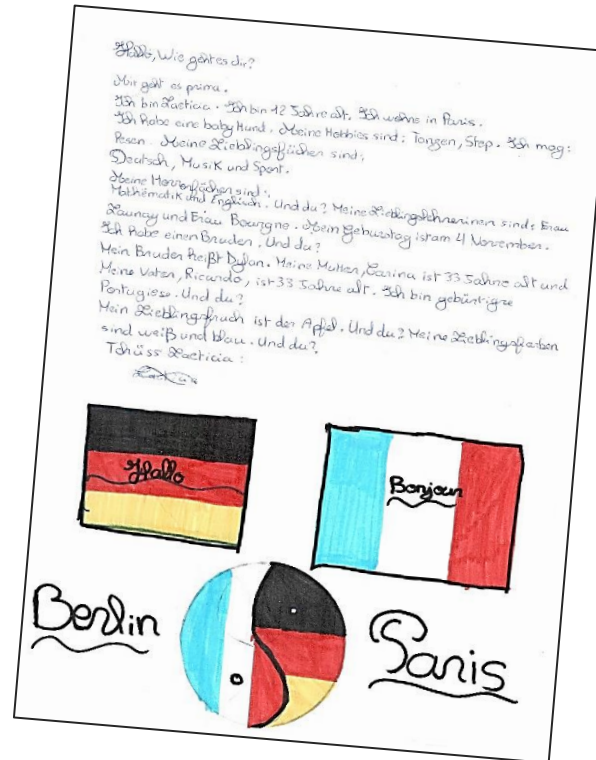 Hallo, Wie geht es dir?
Mir geht es prima.
Ich bin Laeticia. Ich bin 12 Jahre alt. Ich wohne in Paris.
Ich habe eine baby Hund. Meine Hobbies sind: Tanzen, Step. Ich mag:
Lesen. Meine Lieblingsfächen sind:
Deutsch, Musik und Sport.
Meine Horrorfächen sind:
Mathematik und Englisch. Und du? Meine Lieblingslehrerinen sind: Frau
Launay und Frau Bourgne. Mein Geburtstag ist am 4 November.
Ich habe einen Bruder. Und du?
Mein Bruder heißt Dylan. Meine Mutter, Carina ist 33 Jahre alt und
Meine Vater, Ricardo, ist 33 Jahre alt. Ich bin gebürtige
Portugiese. Und du?
Mein Lieblingsfruch ist der Apfel. Und du? Meine Lieblingsfarben
sind weiß und blau. Und du?
Tchüss Laeticia:
Hallo
Bonjour
Berlin
Paris